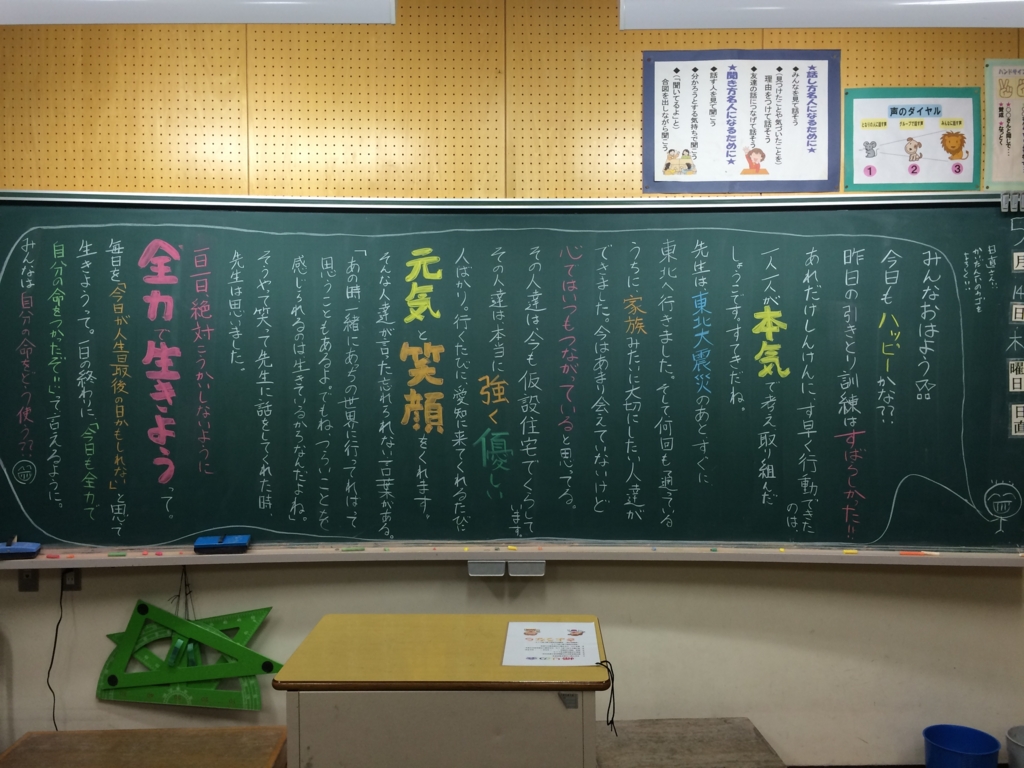 ★話し方名人になるために★
◆みんなを見て話そう
◆(見つけたことや気づいたことを)
理由をつけて話そう
◆友達の話につなげて話そう
★聞き方名人になるために★
◆話す人を見て聞こう
◆分かろうとする気持ちで聞こう
◆(「聞いてるよ」と)
合図を出しながら聞こう
声のダイヤル
1
2
3
月
日
木
曜日
日直
日直さん
みんなおはよう
今日もハッピーかな??
昨日の引きとり訓練はすばらしかった!!
あれだけしんけんに、す早く行動できたのは、
一人一人が本気で考え取り組んだ
しょうこです。すてきだね。
先生は東北大震災のあとすぐに
東北へ行きました。そして何回も通っている
うちに、家族みたいに大切にしたい人達が
できました。今はあまり会えていないけど
心ではいつもつながっていると思ってる。
その人達は今も仮設住宅でくらしています。
その人達は本当に強く優しい
人ばかり。行くたびに、愛知に来てくれるたびに
元気と笑顔をくれます。
そんな人達が言った忘れられない言葉がある。
「あの時一緒にあっちの世界に行ってればって
思うこともあるよ。でもね、つらいことを
感じられるのは生きているからなんだよね。」
そうやって笑って先生に話をしてくれた時、
先生は思いました。
一日一日絶対こうかいしないように
全力で生きようって。
毎日を「今日が人生最後の日かもしれない」と思って
生きようって。一日の終わりに、「今日も全力で
自分の命をつかったぞ!!」って言えるように。
みんなは自分の命をどう使う??